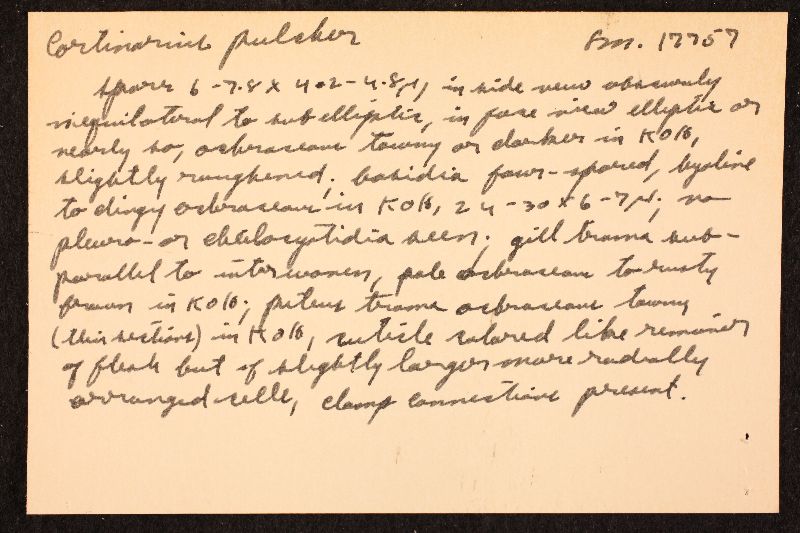 Cortinarius pulcher Sm. 17757
spores 6-7.8 x 4.2-4.8 µ, in side view obscurely
inequilateral to subelliptic, in face view elliptic or
nearly so, ochraceous tawny or darker in KOH,
slightly roughened; basidia four-spored, hyaline
to dingy ochraceous in KOH, 24-30 x 6-7 µ; no
pleuro- or cheilocystidia seen; gill trama sub-
parallel to interwoven, pale ochraceous to rusty
brown in KOH; pileus trama ochraceous tawny
(thin sections) in KOH, cuticle colored like remainder
of flesh but of slightly larger more radially
arranged cells, clamp connections present.